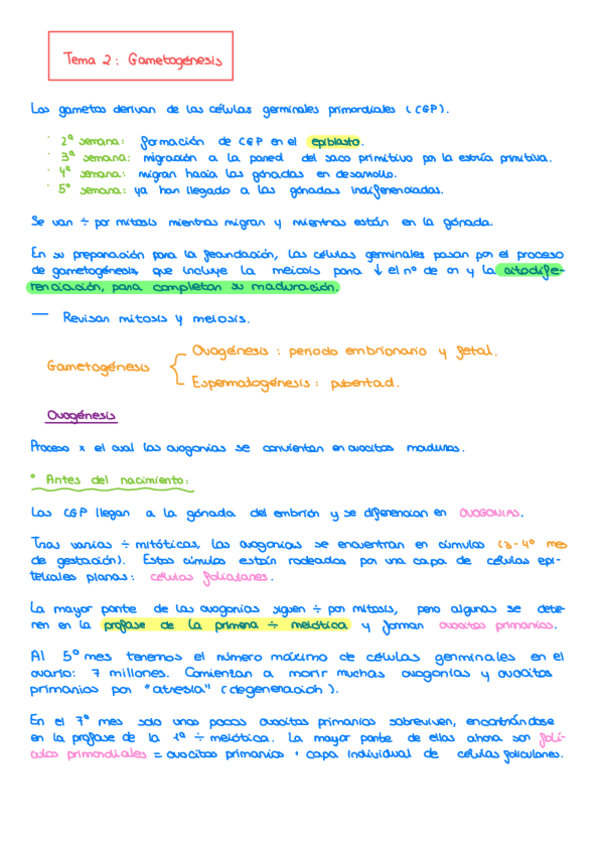 Tema 2: Gametogénesis
Los gametos derivan de las células germinales primordiales (CGP).
· 2ª semana: formación de CGP en el epiblasto.
· 3ª semana: migración a la pared del saco primitivo por la estría primitiva.
· 4ª semana: migran hacia las gónadas en desarrollo.
· 5ª semana: ya han llegado a las gónadas indiferenciadas.
Se van ÷ por mitosis mientras migran y mientras están en la gónada.
En su preparación para la fecundación, las células germinales pasan por el proceso
de gametogénesis, que incluye la meiosis para ↓ el nº de cr y la citodife-
renciación, para completar su maduración.
— Revisar mitosis y meiosis.
Gametogénesis
Ovogénesis: periodo embrionario y fetal.
Espermatogénesis: pubertad.
Ovogénesis
Proceso x el cual las ovogonias se convierten en ovocitos maduros.
* Antes del nacimiento:
Las CGP llegan a la gónada del embrión y se diferencian en OVOGONIAS.
Tras varias ÷ mitóticas, las ovogonias se encuentran en cúmulos (3-4º mes
de gestación). Estos cúmulos están rodeados por una capa de células epi-
teliales planas: células foliculares.
La mayor parte de las ovogonias siguen ÷ por mitosis, pero algunas se detie-
nen en la profase de la primera ÷ meiótica y forman ovocitos primarios.
Al 5º mes tenemos el número máximo de células germinales en el
ovario: 7 millones. Comienzan a morir muchas ovogonias y ovocitos
primarios por "atresia" (degeneración).
En el 7º mes solo unos pocos ovocitos primarios sobreviven, encontrándose
en la profase de la 1ª ÷ meiótica. La mayor parte de ellas ahora son folí-
culos primordiales = ovocitos primarios + capa individual de células foliculares.